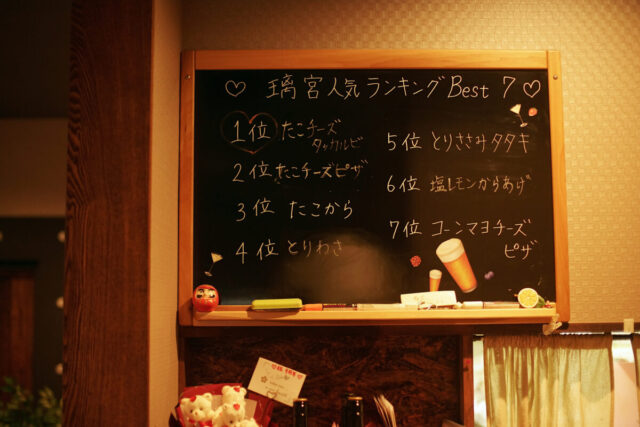 ♡ 璃宮人気ランキングBest 7 ♡
1位 たこチーズ
タッカルビ
2位 たこチーズピザ
3位 たこから
4位 とりわさ
5位 とりささみタタキ
6位 塩レモンからあげ
7位 コーンマヨチーズ
ピザ